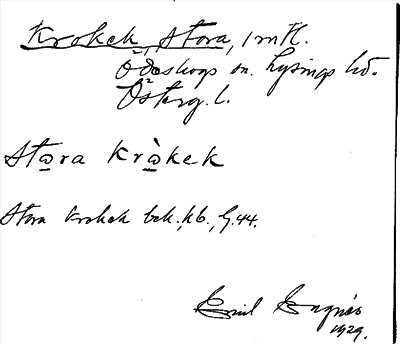 Krokek, Stora, 1 mtl.
Ödeshögs sn. Lysings hd.
Österg. l.
Stω̲ra Krὼ̲kek
Stora Krokek bek., kb., G. 44.
Emil
1929.